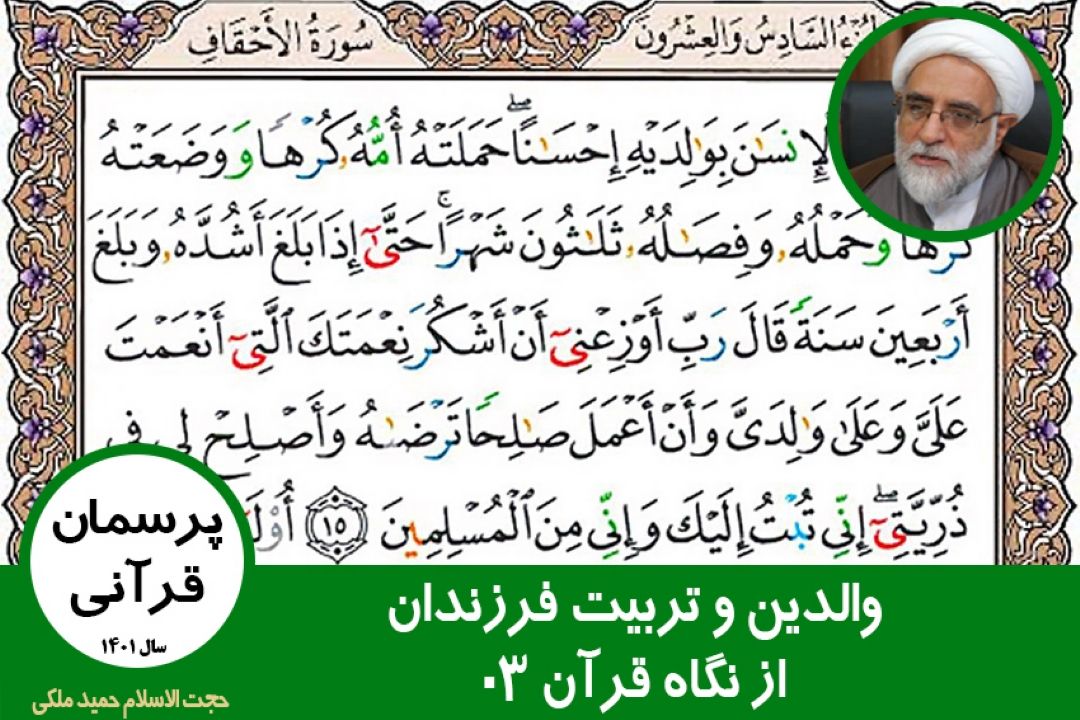 سُورَةُ الْأَحْقَافِ
السَّادِسُ وَالْعِشْرُونَ
لْإِنسَٰنَ بِوَٰلِدَيْهِ إِحْسَٰنًاۖ حَمَلَتْهُ أُمُّهُۥ كُرْهًا وَوَضَعَتْهُ
كُرْهًا وَحَمْلُهُۥ وَفِصَٰلُهُۥ ثَلَٰثُونَ شَهْرًاۚ حَتَّىٰٓ إِذَا بَلَغَ أَشُدَّهُۥ وَبَلَغَ
أَرْبَعِينَ سَنَةً قَالَ رَبِّ أَوْزِعْنِىٓ أَنْ أَشْكُرَ نِعْمَتَكَ ٱلَّتِىٓ أَنْعَمْتَ
عَلَىَّ وَعَلَىٰ وَٰلِدَىَّ وَأَنْ أَعْمَلَ صَٰلِحًا تَرْضَىٰهُ وَأَصْلِحْ لِى فِى
ذُرِّيَّتِىٓۖ إِنِّى تُبْتُ إِلَيْكَ وَإِنِّى مِنَ ٱلْمُسْلِمِينَ ١٥
پرسمان
قرآنی
سال ۱۴۰۱
والدین و تربیت فرزندان
از نگاه قرآن ۰۳
حجت الاسلام حمید ملکی